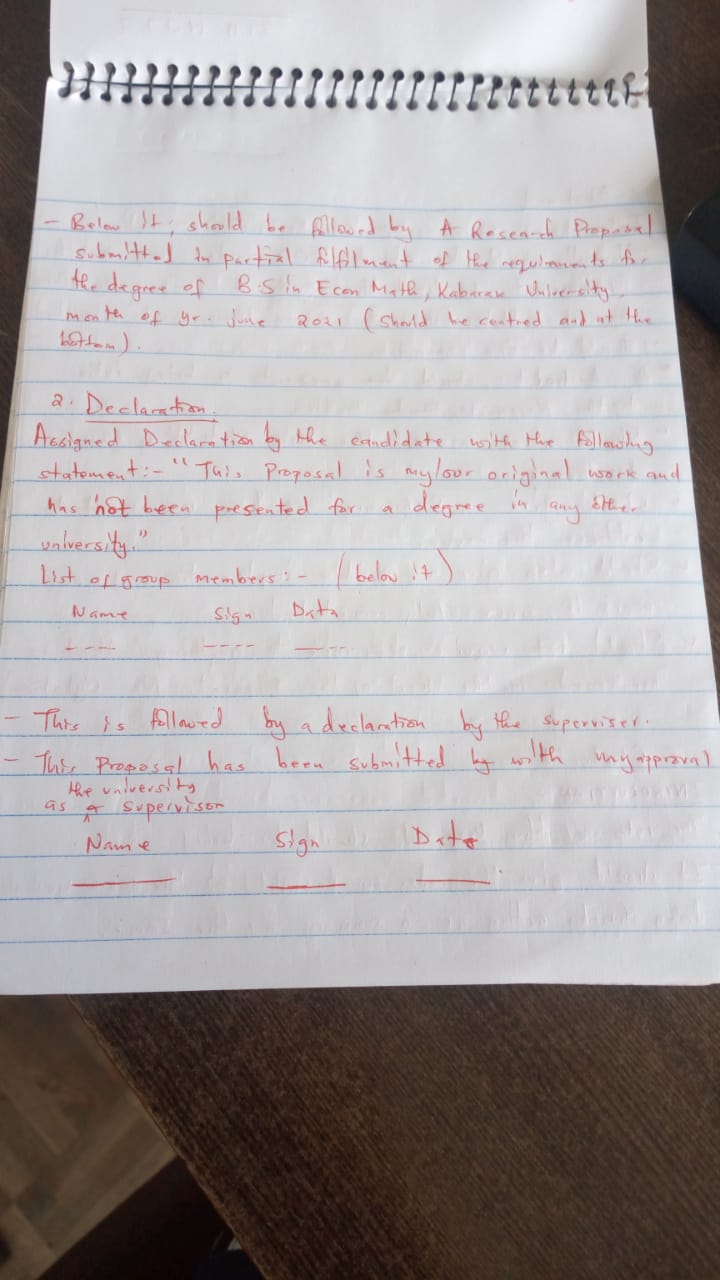 - Below it, should be followed by A Research Proposal
submitted in partial fulfilment of the requirements for
the degree of B.S in Econ Math, Kabarak University,
month of yr. june 2021 (should be centred and at the
bottom).
2. Declaration.
Assigned Declaration by the candidate with the following
statement:- "This Proposal is my/our original work and
has not been presented for a degree in any other
university."
List of group members:- (below it)
Name Sign Date
--- ---- ----
- This is followed by a declaration by the superviser.
- This Proposal has been submitted by with my approval
the university
as a supervisor
Name Sign Date